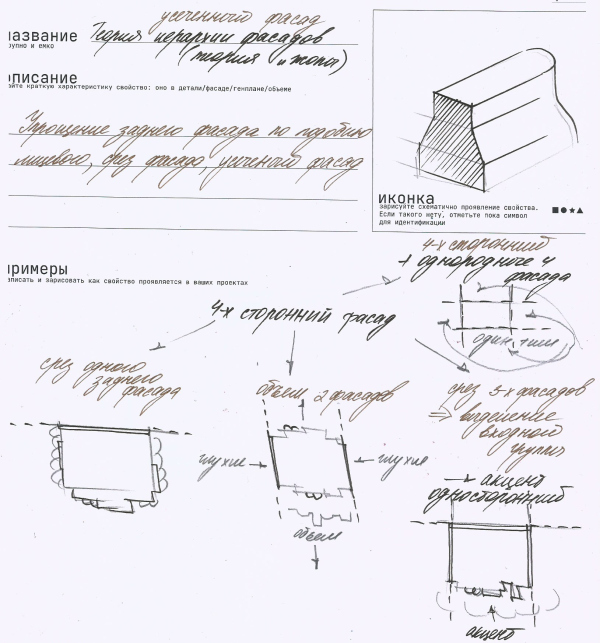 усеченного фасад
название Теория иерархии фасадов
крупно и емко
(теория "и жопа)
описание
дайте краткую характеристику свойство: оно в детали/фасаде/генплане/объеме
Упрощение заднего фасада по подобию
лицевого, срез фасада, усеченый фасад
иконка
зарисуйте схематично проявление свойства.
Если такого нету, отметьте пока символ
для идентификации
примеры
записать и зарисовать как свойство проявляется в ваших проектах
4-х сторонний
однородные 4
фасада
один типа
4-х сторонний фасад
срез одного
заднего
фасада
объем 2 фасадов
глухие
глухие
объем
срез 3-х фасадов
⇒ видение
входной
группы
→ акцент
односторонний
акцент